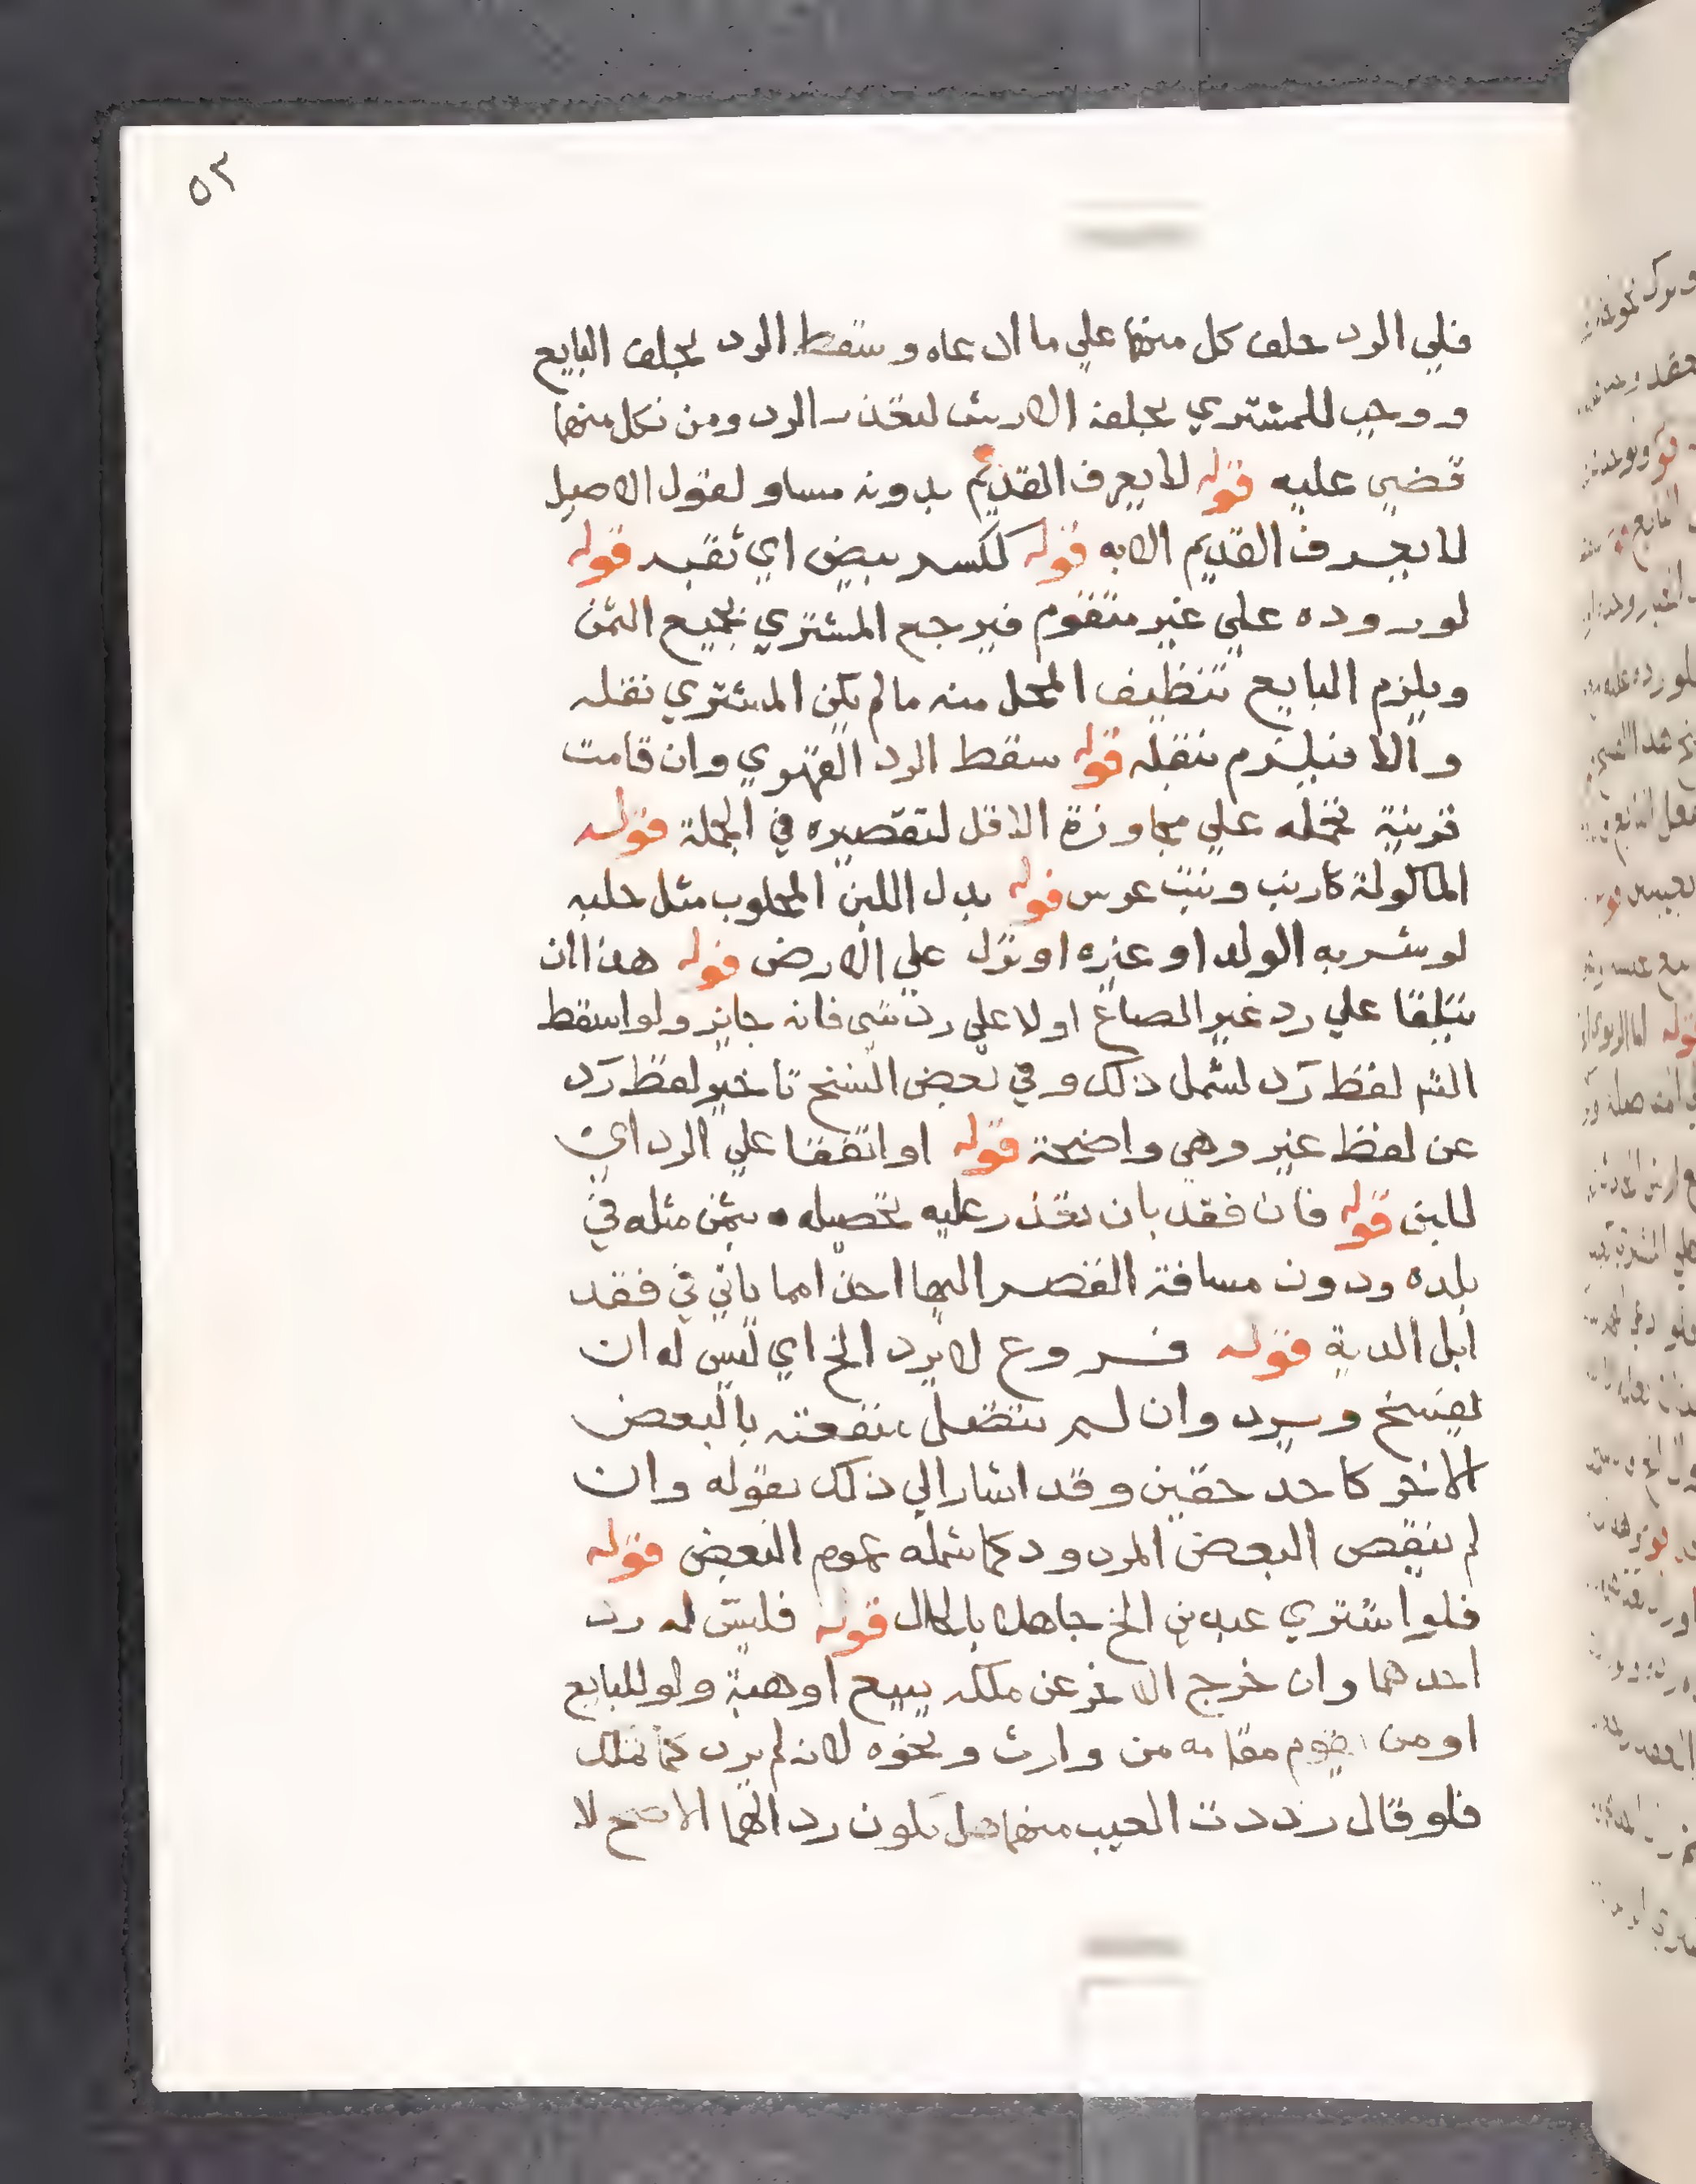 ٥٣
فلي الرد حلف كل منهما علي ما ادعاه وسقط الرد بحلف البايع
ووجب للمشتري بحلفه الارش لتعذر الرد ومن نكل منهما
قضي عليه قوله لا يعرف القديم بدونه مساو لقول الاصل
لا يعرف القديم الا به قوله ككسر بيض اي ثقبه قوله
لوروده علي غير متقوم فيرجع المشتري بجميع الثمن
ويلزم البايع تنظيف المحل منه ما لم يكن المشتري نقله
والا فيلزم بنقله قوله سقط الرد القهري وان قامت
قرينة تحمله علي مجاوزة الاقل لتقصيره في الجملة قوله
الماكولة كارنب وبنت عرس قوله بدل اللبن المحلوب مثل حلبه
لو شربه الولد او غيره او نزل علي الارض قوله هذا ان
يتفقا علي رد غير الصاع او لا علي رد شي فانه جايز ولو اسقط
الشم لفظ رد لشمل ذلك وفي بعض النسخ تاخير لفظ رد
عن لفظ غير وهي واضحة قوله او اتفقا علي الرد اي
للبن قوله فان فقد بان تعذر عليه تحصيله بثمن مثله في
بلده ودون مسافة القصر اليها اخذا مما ياتي في فقد
ابل الدية قوله فروع لا يرد الخ اي ليس له ان
يفسخ ويرد وان لم تتصل منفعته بالبعض
الاخر كاحد خفين وقد اشار الي ذلك بقوله وان
لم ينقص البعض المردود كما شمله عموم البعض قوله
فلو اشتري عبدين الخ جاهلا بالحال قوله فليس له رد
احدهما وان خرج الاخر عن ملكه ببيع او هبة ولو للبايع
او من يقوم مقامه من وارث ونحوه لانه لم يرد كما تملك
فلو قال رددت العيب منهما هل يكون ردا لهما الاصح لا